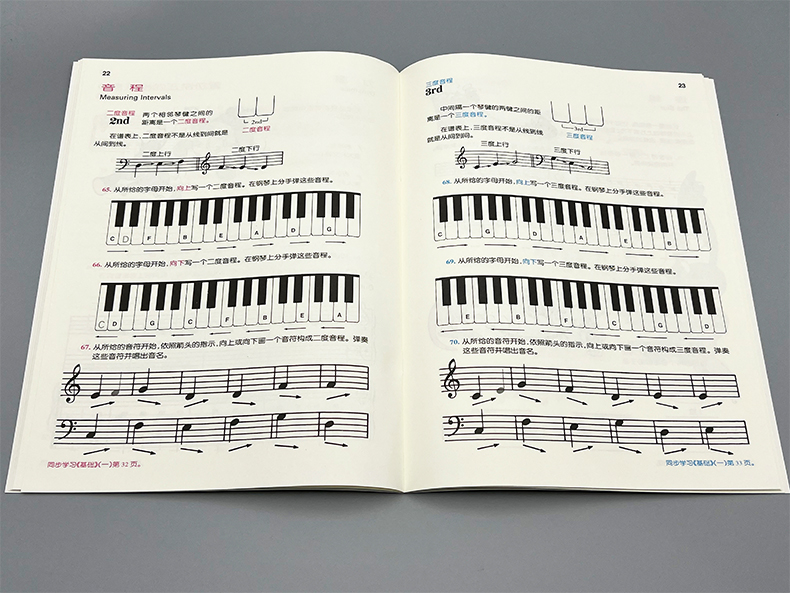 22
音 程
Measuring Intervals
二度音程
2nd
两个相邻琴键之间的
距离是一个二度音程。
2nd
二度音程
在谱表上，二度音程不是从线到间就是
从间到线。
二度上行
二度下行
65. 从所给的字母开始，向上写一个二度音程。在钢琴上分手弹这些音程。
C D F B A E G
66. 从所给的字母开始，向下写一个二度音程。在钢琴上分手弹这些音程。
C D G F B E A
67. 从所给的音符开始，依照箭头的指示，向上或向下画一个音符构成二度音程。弹奏
这些音符并唱出音名。
同步学习《基础》(一)第 32 页。
23
三度音程
3rd
中间隔一个琴键的两键之间的距
离是一个三度音程。
3rd
三度音程
在谱表上，三度音程不是从线到线
就是从间到间。
三度上行
三度下行
68. 从所给的字母开始，向上写一个三度音程。在钢琴上分手弹这些音程。
69. 从所给的字母开始，向下写一个三度音程。在钢琴上分手弹这些音程。
70. 从所给的音符开始，依照箭头的指示，向上或向下画一个音符构成三度音程。弹奏
这些音符并唱出音名。
同步学习《基础》(一)第 33 页。